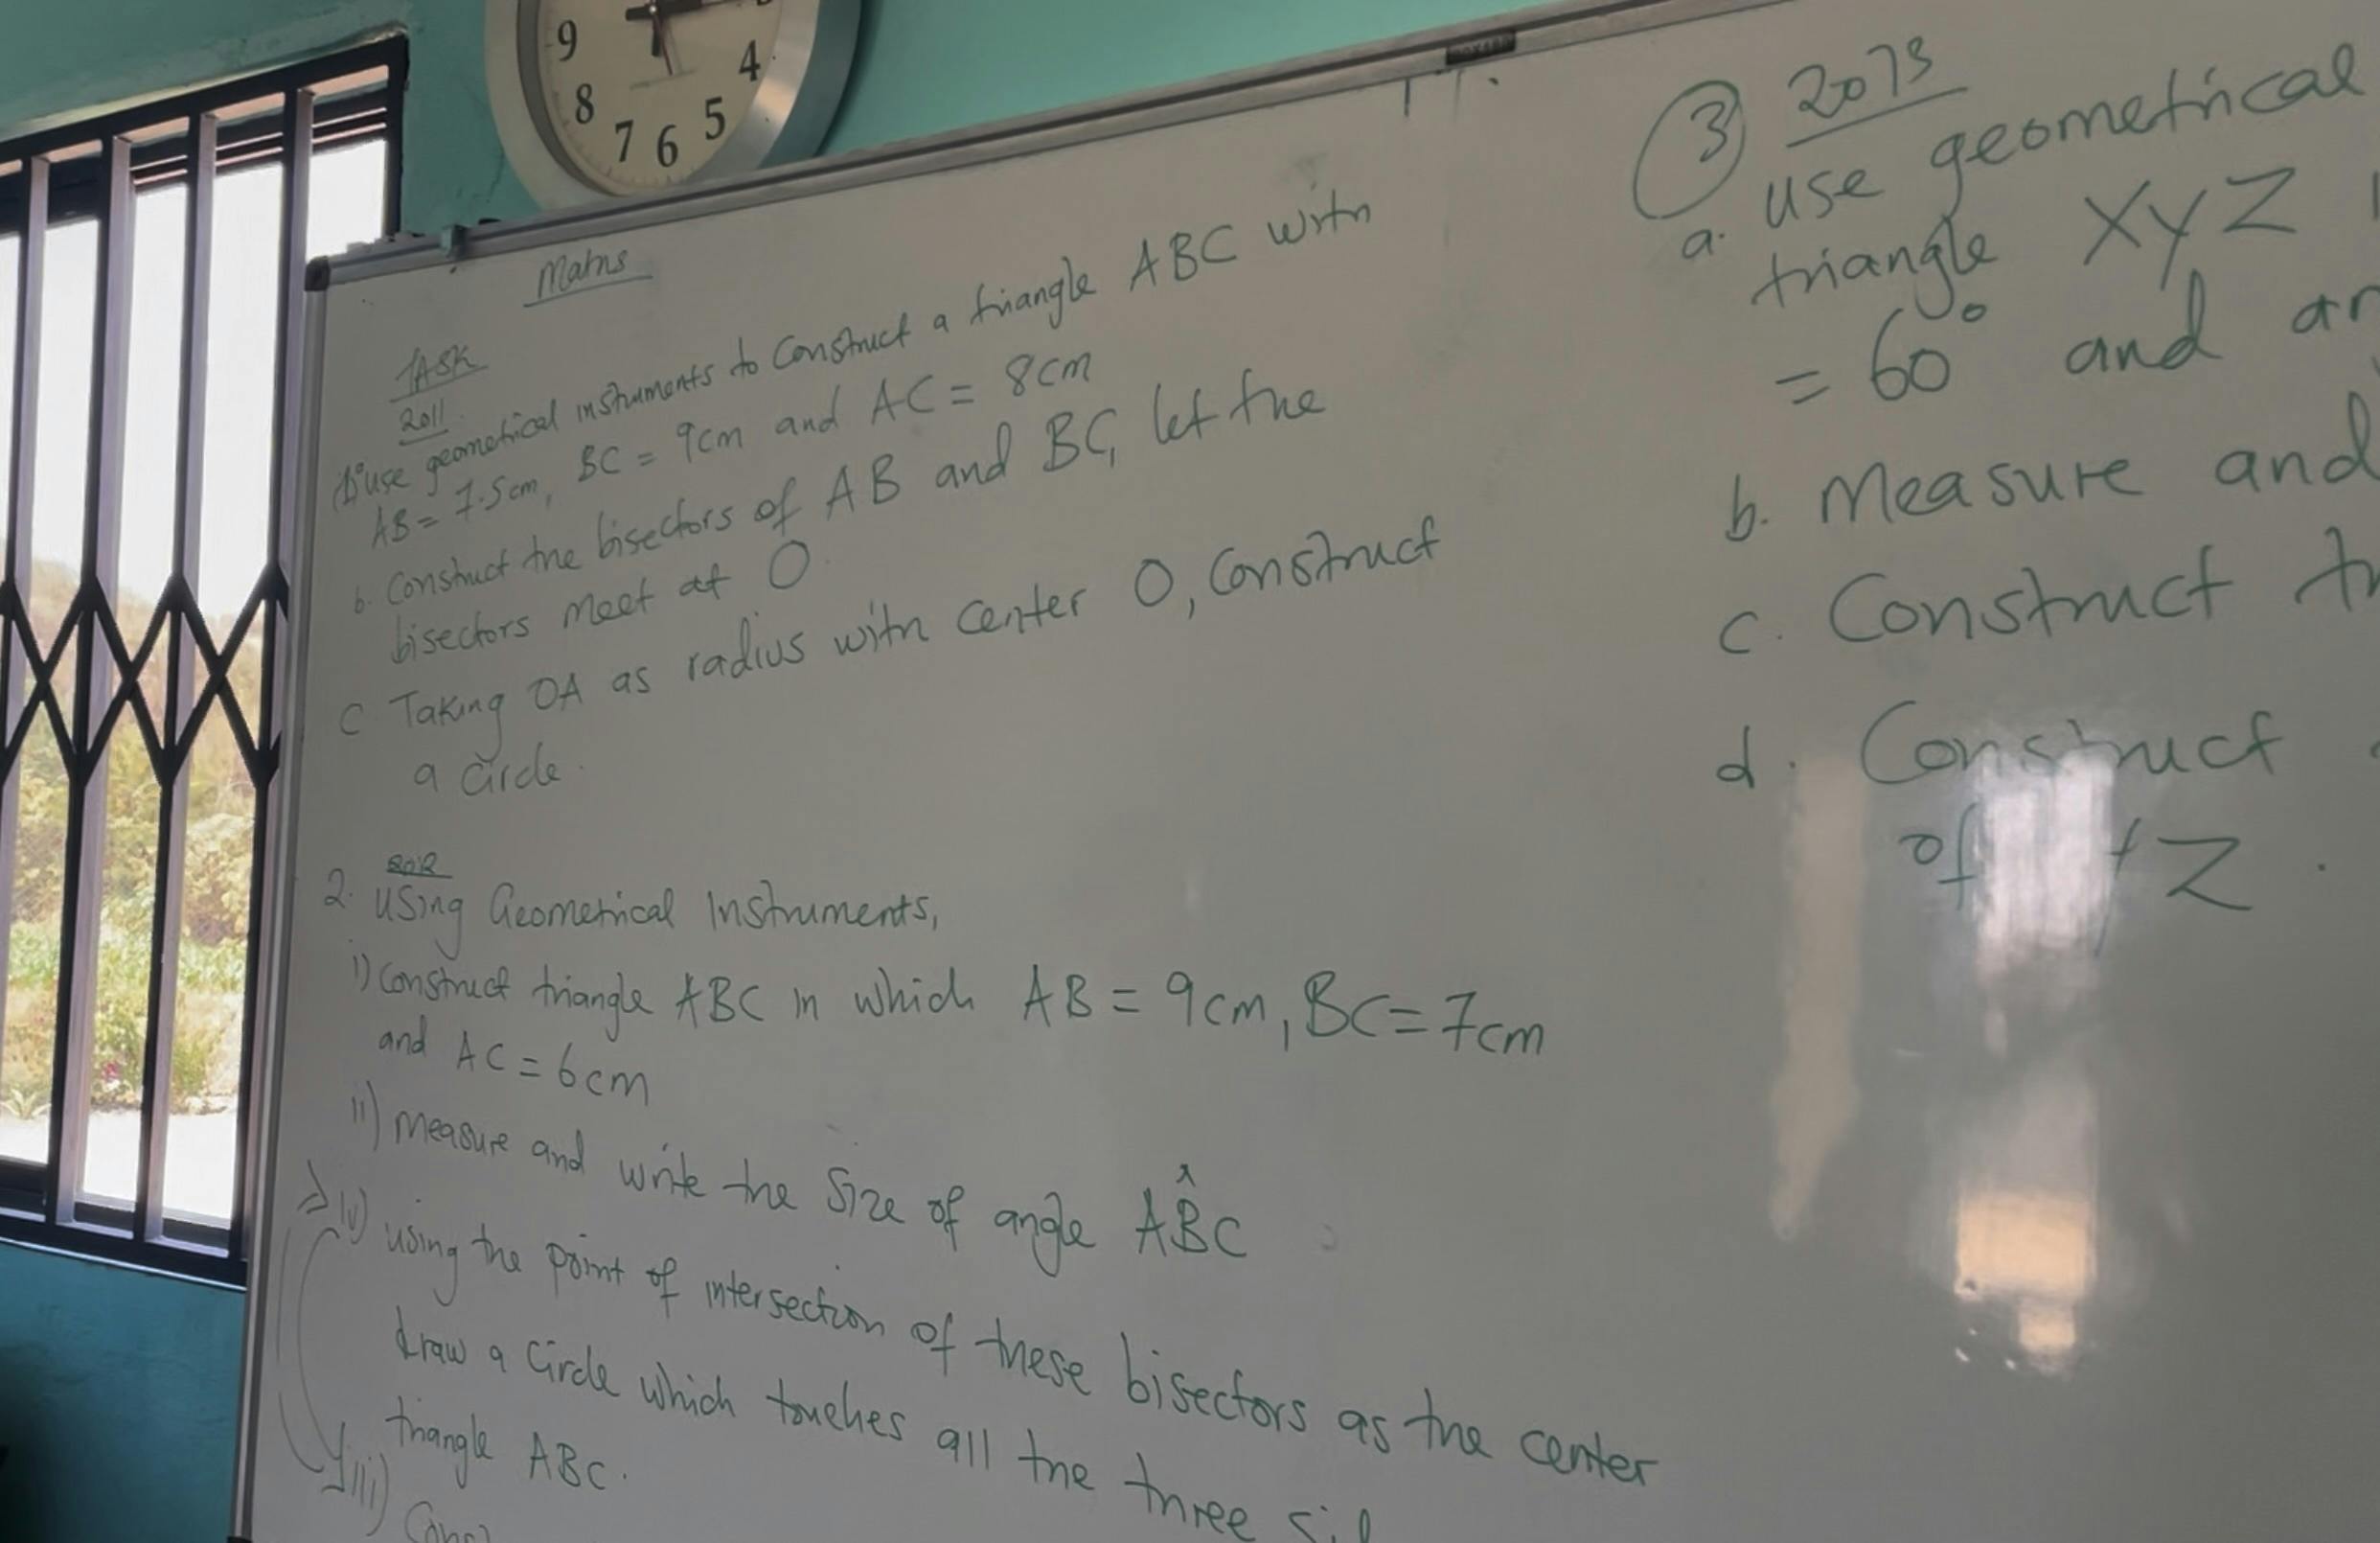 9
8
7
6
5
4
Maths
TASK
2011
use geometrical instruments to Construct a triangle ABC with
AB = 7.5cm, BC = 9cm and AC = 8cm
b. Construct the bisectors of AB and BC, let the
bisectors meet at O.
C Taking OA as radius with Center O, Construct
a circle.
2012
2. Using Geometrical Instruments,
i) Construct triangle ABC in which AB = 9cm, BC = 7cm
and AC = 6cm
ii) Measure and write the Size of angle AB̂C
iv) using the point of intersection of these bisectors as the center
draw a Circle which touches all the three
triangle ABC.
iii)
3 2013
a. use geometrical
triangle XYZ
= 60° and
b. Measure and
c. Construct
d. Construct
of YZ.